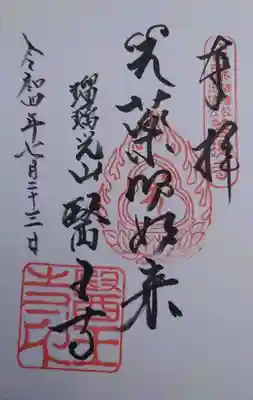 奉拝
光薬師如来
瑠璃光山 醫王寺
令和四年七月二十三日
醫王寺印